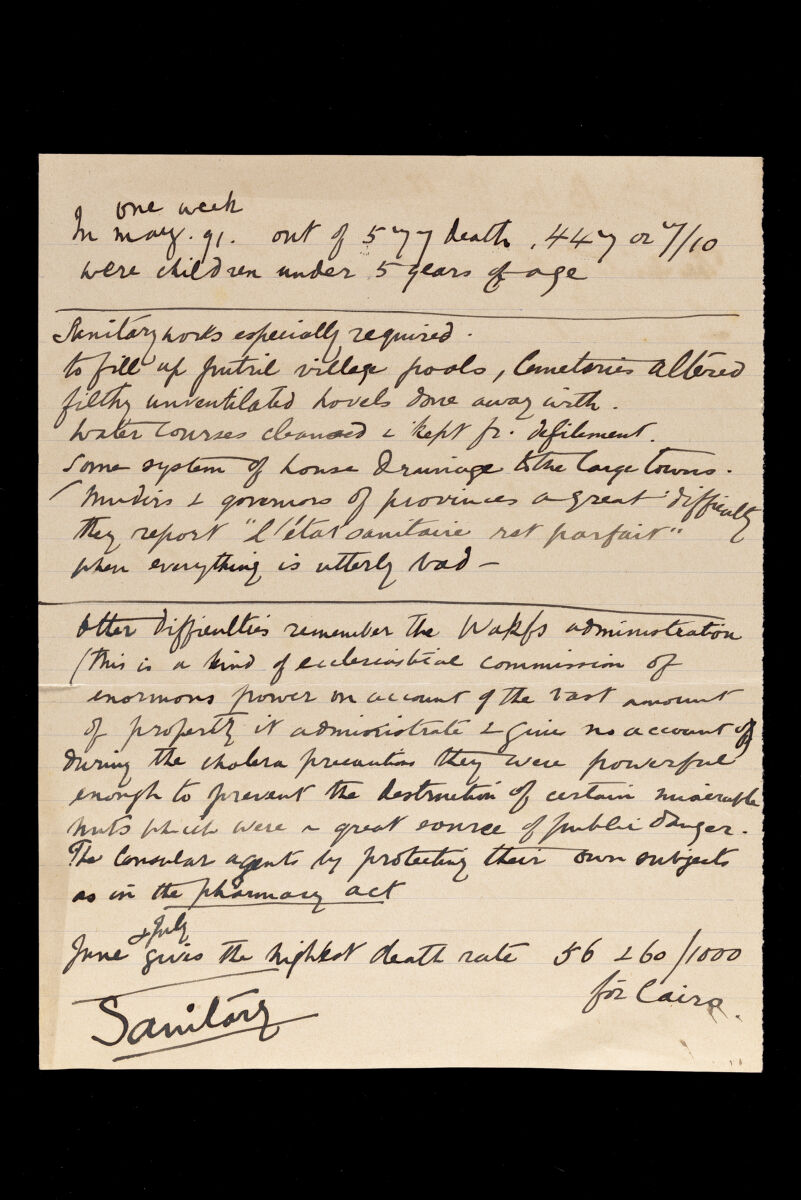 one week
In may. 91. out of 577 death, 447 or 7/10
were children under 5 years of age
Sanitary works especially required.
to fill up putril village pools, Cemeteries altered
filthy unventilated hovels done away with.
water courses cleansed & kept fr. defilement.
Some system of house drainage the large towns.
(Mudirs & governors of provinces a great difficulty
they report "L'état sanitaire est parfait"
when everything is utterly bad —
Other difficulties remember the Wakfs administration
(this is a kind of ecclesiastical commission of
enormous power on account of the vast amount
of property it administrate & give no account of
during the cholera precautions they were powerful
enough to prevent the destruction of certain miserable
huts which were a great source of public danger.
The Consular agents by protecting their own subjects
as in the pharmacy act
& July
June gives the highest death rate 56 & 60/1000
for Cairo.
Sanitary